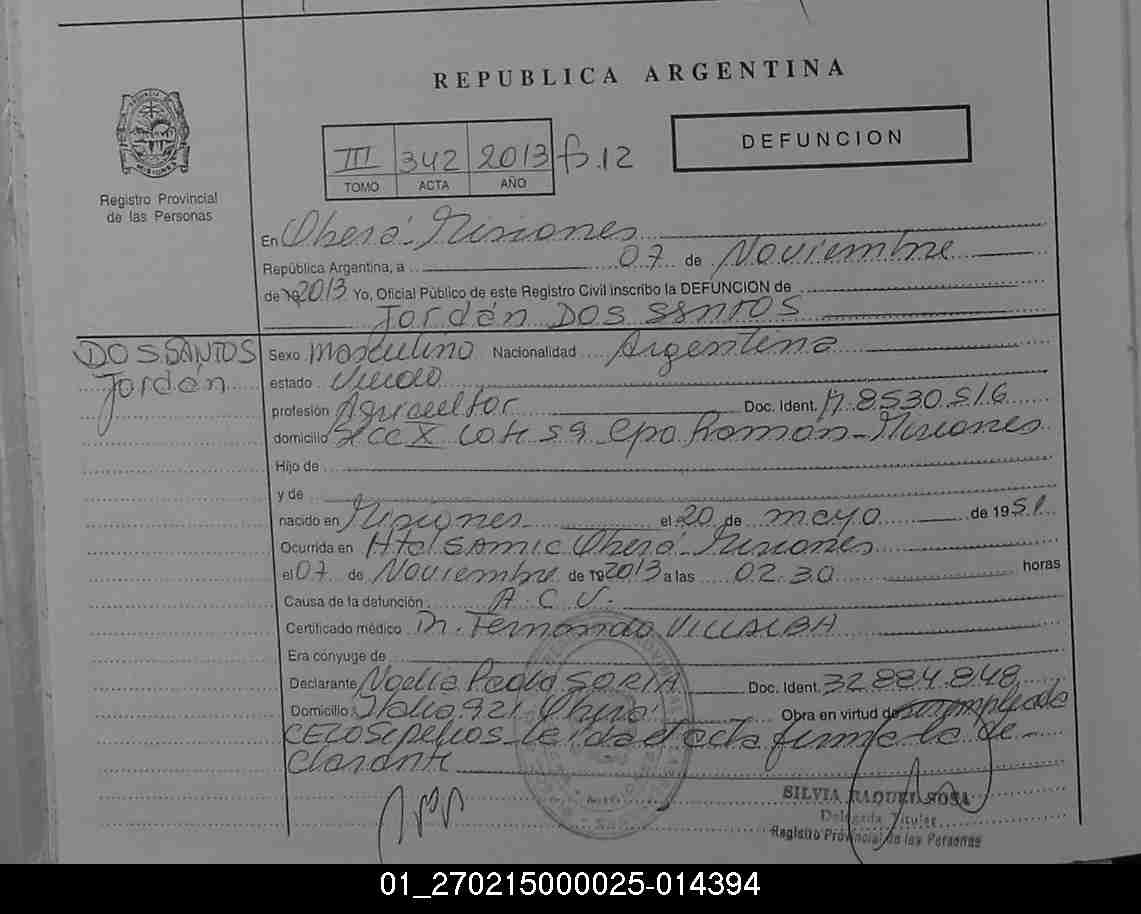 REPUBLICA ARGENTINA
DEFUNCION
III 342 2013 fo. 12
TOMO ACTA AÑO
Registro Provincial
de las Personas
En Oberá - Misiones
República Argentina, a 07 de Noviembre
de 19 2013 Yo, Oficial Público de este Registro Civil inscribo la DEFUNCION de
Jordán DOS SANTOS
DOS SANTOS
Jordán
Sexo Masculino Nacionalidad Argentina
estado Viudo
profesión Agricultor Doc. Ident. M. 8530516
domicilio Secc X Lote 59 Cpo Román - Misiones
Hijo de
y de
nacido en Misiones el 20 de mayo de 1951
Ocurrida en Htal SAMIC Oberá - Misiones
el 07 de Noviembre de 19 2013 a las 02.30 horas
Causa de la defunción A C V.
Certificado médico Dr. Fernando VILLALBA
Era cónyuge de
Declarante Noelia Paola SORIA Doc. Ident. 32.884.848
Domicilio: Italia 921 Oberá Obra en virtud de ser empleada
CELO Sepelios - Leída el acta firma la de-
clarante
SILVIA RAQUEL SOSA
Delegada Titular
Registro Provincial de las Personas
01_270215000025-014394